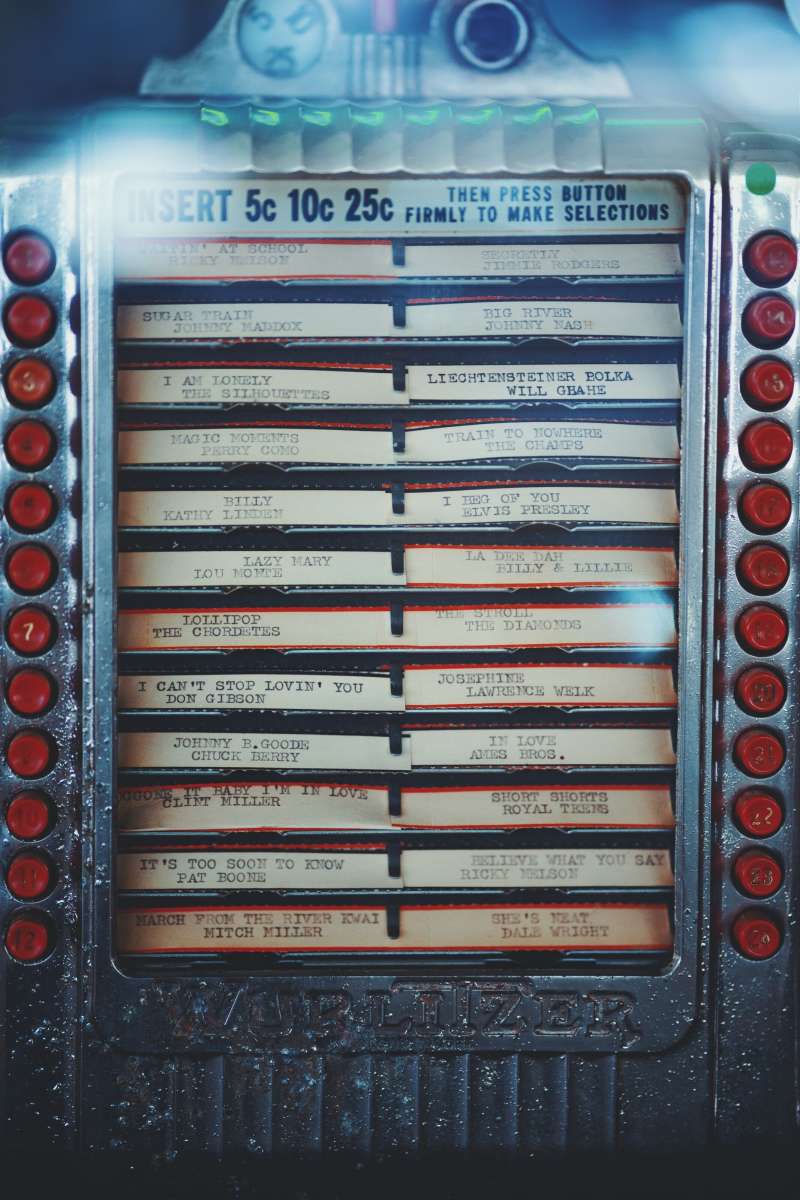 INSERT 5c 10c 25c
THEN PRESS BUTTON
FIRMLY TO MAKE SELECTIONS
WAITIN' AT SCHOOL
RICKY NELSON
SECRETLY
JIMMIE RODGERS
SUGAR TRAIN
JOHNNY MADDOX
BIG RIVER
JOHNNY NASH
I AM LONELY
THE SILHOUETTES
LIECHTENSTEINER POLKA
WILL GLAHE
MAGIC MOMENTS
PERRY COMO
TRAIN TO NOWHERE
THE CHAMPS
BILLY
KATHY LINDEN
I BEG OF YOU
ELVIS PRESLEY
LAZY MARY
LOU MONTE
LA DEE DAH
BILLY & LILLIE
LOLLIPOP
THE CHORDETES
THE STROLL
THE DIAMONDS
I CAN'T STOP LOVIN' YOU
DON GIBSON
JOSEPHINE
LAWRENCE WELK
JOHNNY B.GOODE
CHUCK BERRY
IN LOVE
AMES BROS.
OGGONE IT BABY I'M IN LOVE
CLINT MILLER
SHORT SHORTS
ROYAL TEENS
IT'S TOO SOON TO KNOW
PAT BOONE
BELIEVE WHAT YOU SAY
RICKY NELSON
MARCH FROM THE RIVER KWAI
MITCH MILLER
SHE'S NEAT
DALE WRIGHT
3
7
10
11
12
20
21
22
23
24
WURLITZER